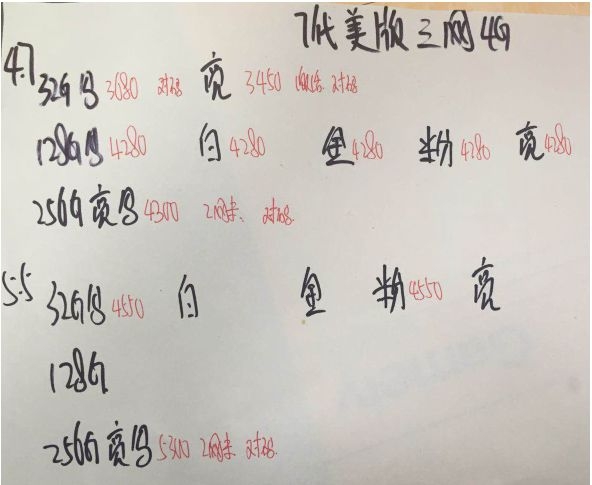 7代美版三网4G
4.7
32G 3680 亮 3450
128G 4280 白 4280 金 4280 粉 4280 亮 4280
256G亮 4300 2网
5.5
32G 4550 白 金 粉 4550 亮
128G
256G亮 5300 2网